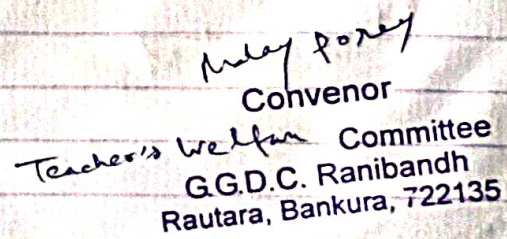 Malay Porey
Convenor
Teacher's Welfare Committee
G.G.D.C. Ranibandh
Rautara, Bankura, 722135